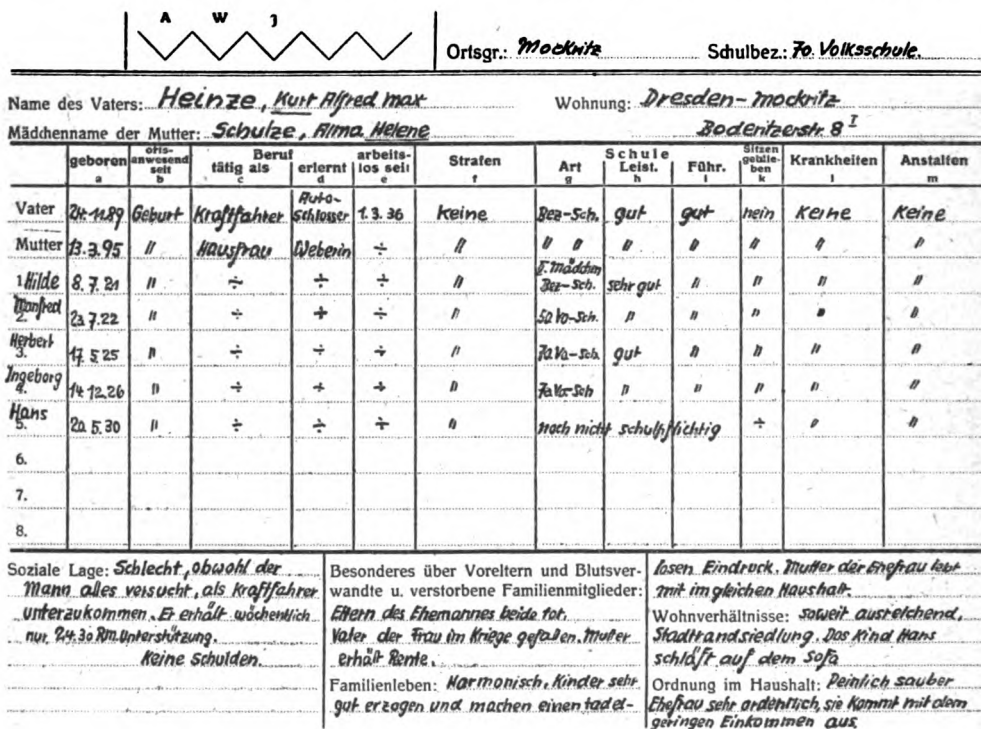 A W J
Ortsgr.: Mockritz Schulbez.: 70. Volksschule.
Name des Vaters: Heinze, Kurt Alfred Max Wohnung: Dresden-Mockritz
Mädchenname der Mutter: Schulze, Alma Helene Boderitzerstr. 8 I
geboren a ortsanwesend seit b Beruf tätig als c erlernt d arbeitslos seit e Strafen f Schule Art g Leist. h Führ. i Sitzen geblieben k Krankheiten l Anstalten m
Vater 24.11.89 Geburt Kraftfahrer Auto-schlosser 1.3.36 Keine Bez-Sch. gut gut nein Keine Keine
Mutter 13.3.95 " Hausfrau Weberin ÷ " " " " " " " "
1. Hilde 8.7.21 " ÷ ÷ ÷ " Mädchen Bez-Sch. sehr gut " " " "
Manfred 2. 23.7.22 " ÷ ÷ ÷ " 50 Vo-Sch. " " " " "
Herbert 3. 17.5.25 " ÷ ÷ ÷ " 70 Vo-Sch. gut " " " "
Ingeborg 4. 14.12.26 " ÷ ÷ ÷ " 70 Vo-Sch " " " " "
Hans 5. 20.5.30 " ÷ ÷ ÷ " noch nicht schulpflichtig ÷ " "
6.
7.
8.
Soziale Lage: Schlecht, obwohl der
Mann alles versucht, als Kraftfahrer
unterzukommen. Er erhält wöchentlich
nur 24.30 Rm. Unterstützung.
Keine Schulden.
Besonderes über Voreltern und Blutsver-
wandte u. verstorbene Familienmitglieder:
Eltern des Ehemannes beide tot.
Vater der Frau im Kriege gefallen. Mutter
erhält Rente.
Familienleben: Harmonisch. Kinder sehr
gut erzogen und machen einen tadel-
losen Eindruck. Mutter der Ehefrau lebt
mit im gleichen Haushalt.
Wohnverhältnisse: soweit ausreichend,
Stadtrandsiedlung. Das Kind Hans
schläft auf dem Sofa
Ordnung im Haushalt: Peinlich sauber
Ehefrau sehr ordentlich, sie kommt mit dem
geringen Einkommen aus.